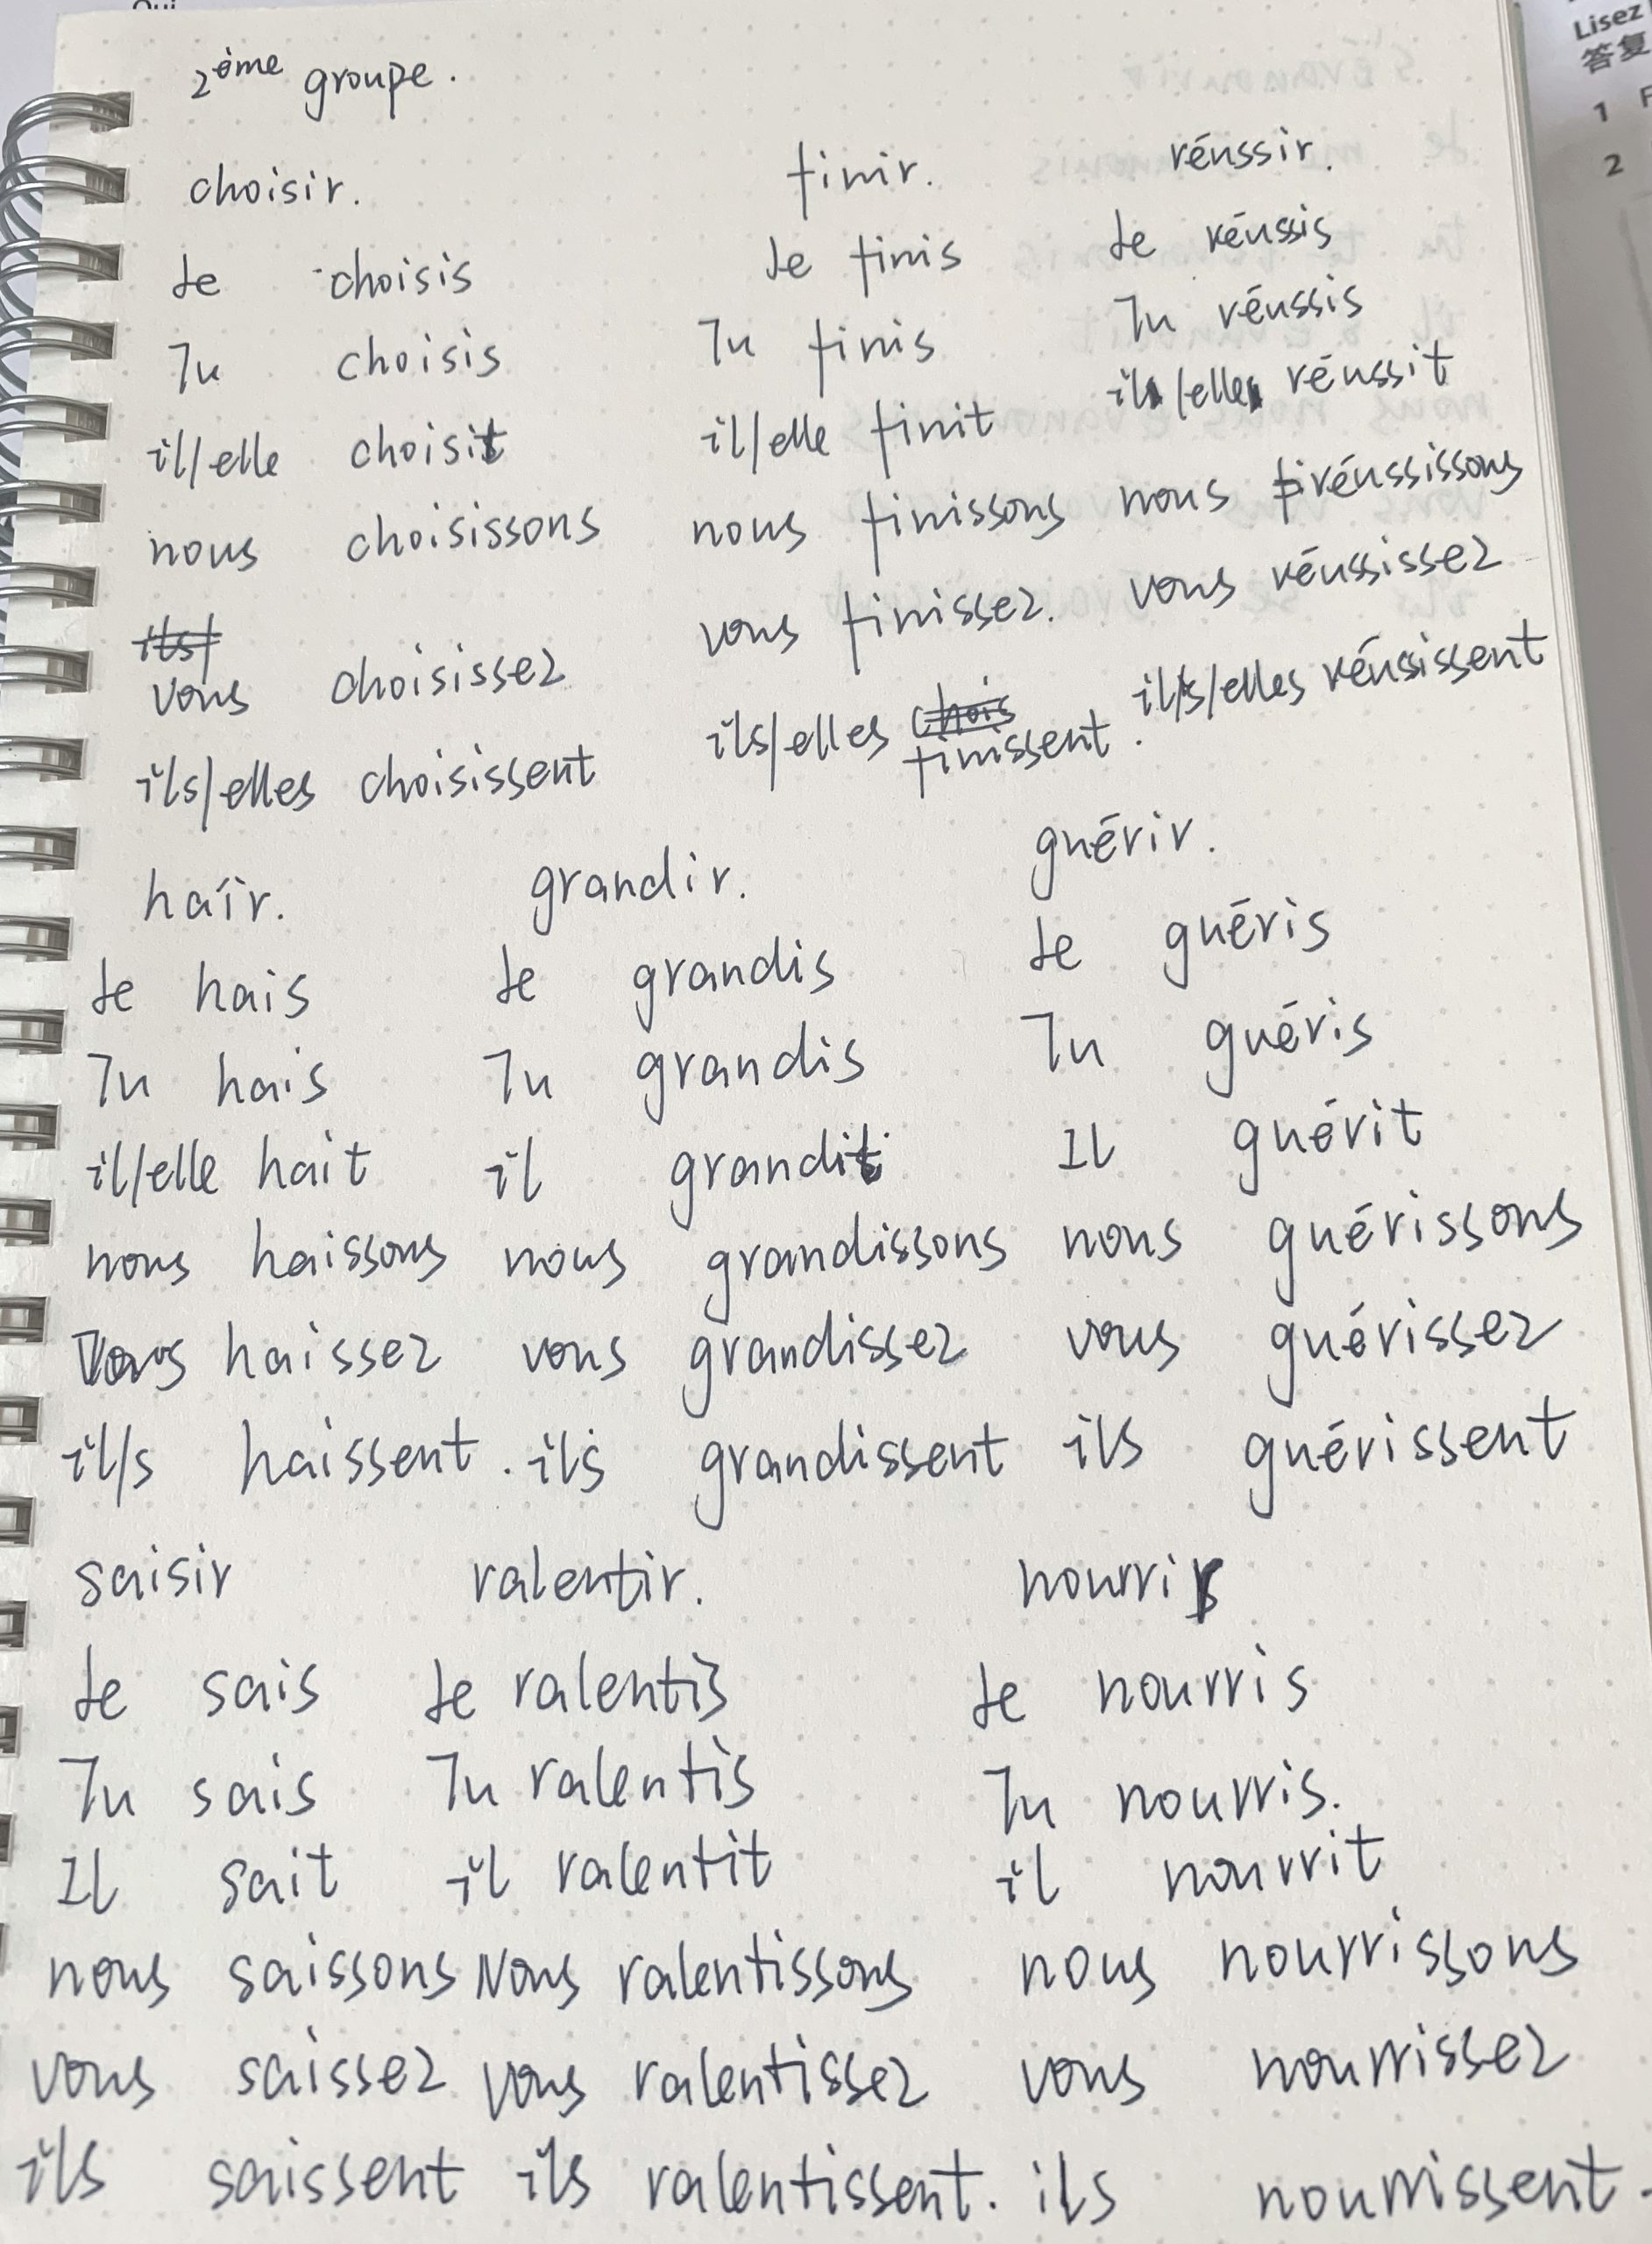 2ème groupe.
choisir. finir. réussir.
Je choisis Je finis Je réussis
Tu choisis Tu finis Tu réussis
il/elle choisit il/elle finit il/elle réussit
nous choisissons nous finissons nous réussissons
ils/
vous choisissez vous finissez. vous réussissez
ils/elles choisissent ils/elles chois finissent. ils/elles réussissent
haïr. grandir. guérir.
Je hais Je grandis Je guéris
Tu hais Tu grandis Tu guéris
il/elle hait il grandit Il guérit
nous haissons nous grandissons nous guérissons
Vous haissez vous grandissez vous guérissez
il/s haissent. ils grandissent ils guérissent
saisir ralentir. nourrir
Je sais Je ralentis Je nourris
Tu sais Tu ralentis Tu nourris.
Il sait il ralentit il nourrit
nous saissons Nous ralentissons nous nourrissons
vous saissez vous ralentissez vous nourrissez
ils saissent ils ralentissent. ils nourrissent.
Lisez
答复
1 F
2